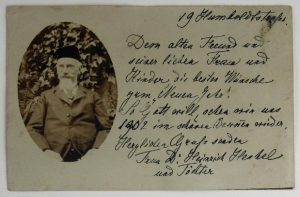 19 Humboldtstrasse.
Dem alten Freund und
seiner lieben Frau und
Kinder die besten Wünsche
zum Neuen Jahr!
So Gott will, sehen wir uns
1902 im schönen wieder.
Herzlichen Gruss senden
Frau Dr. Heinrich
und Töchter